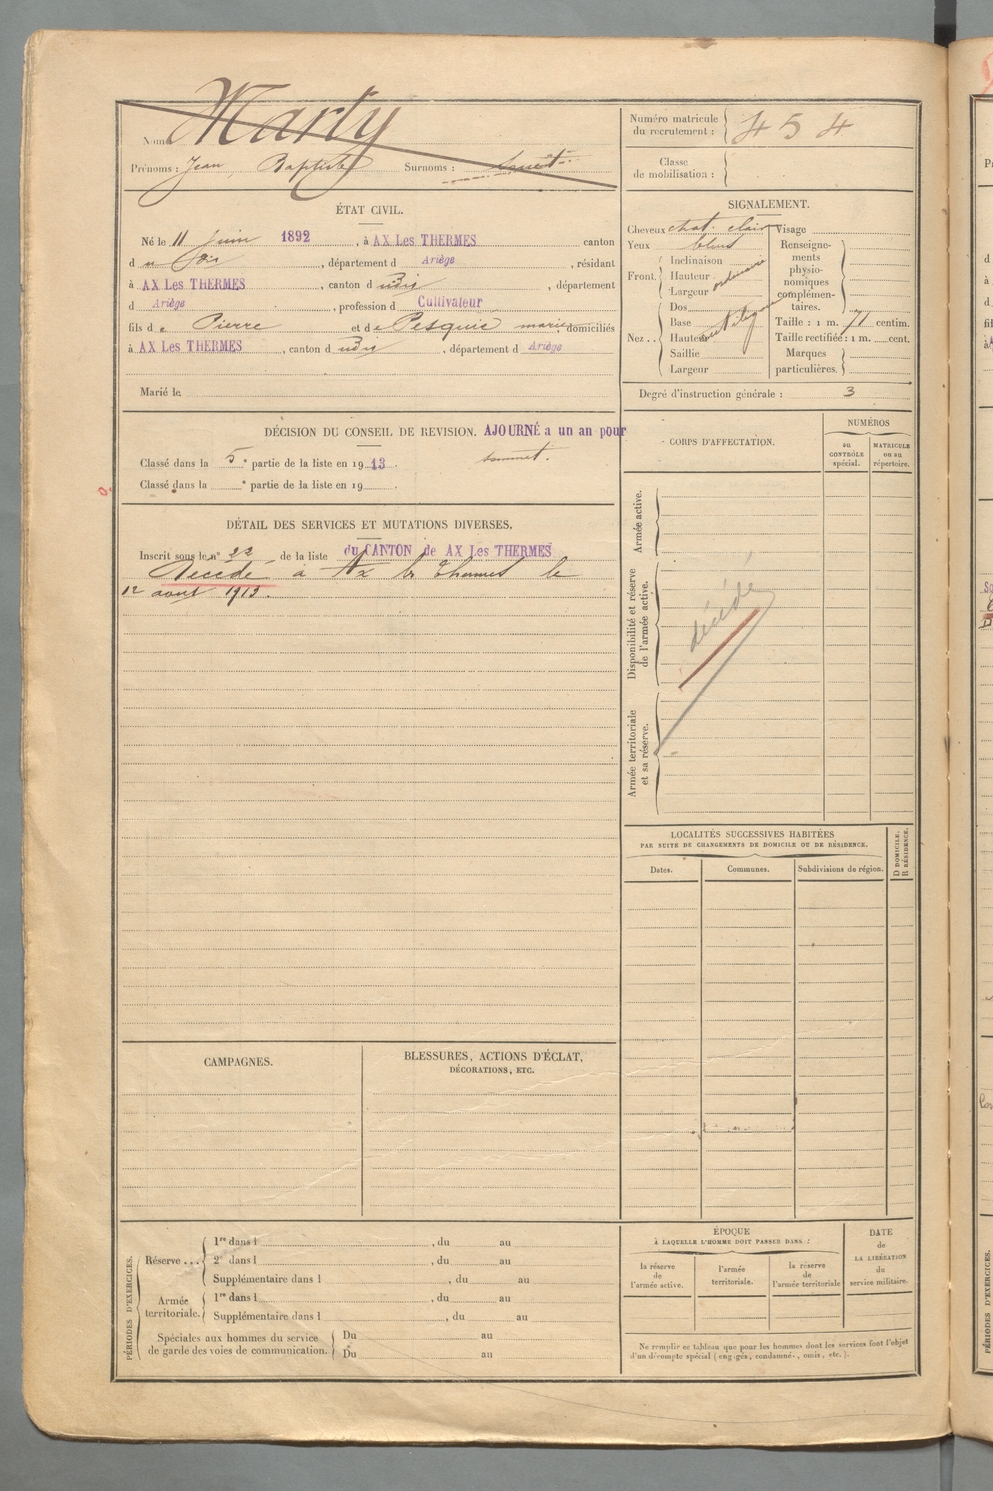 Nom Marty
Prénoms : Jean, Baptiste Surnoms :
Numéro matricule du recrutement : 454
Classe de mobilisation :
ÉTAT CIVIL.
Né le 11 Juin 1892, à AX Les THERMES canton
d u dis, département d Ariège, résidant
à AX Les THERMES, canton d udis, département
d Ariège, profession d Cultivateur
fils de Pierre et de Pesquié marie domiciliés
à AX Les THERMES, canton d udis, département d Ariège
Marié le
SIGNALEMENT.
Cheveux chat. clair Visage
Yeux bleus Renseigne-
ments
physio-
nomiques
complémen-
taires.
Front. Inclinaison
Hauteur
Largeur ordinaire
Nez .. Dos
Base
Hauteur
Saillie
Largeur
Taille : 1 m. 71 centim.
Taille rectifiée : 1 m. cent.
Marques
particulières.
Degré d'instruction générale : 3
DÉCISION DU CONSEIL DE REVISION. AJOURNÉ a un an pour
Classé dans la 5e partie de la liste en 1913.
Classé dans la e partie de la liste en 19
CORPS D'AFFECTATION.
NUMÉROS
au CONTRÔLE spécial.
MATRICULE ou au répertoire.
Armée active.
Disponibilité et réserve de l'armée active.
Armée territoriale et sa réserve.
décédé
DÉTAIL DES SERVICES ET MUTATIONS DIVERSES.
Inscrit sous le n° 22 de la liste du CANTON de AX Les THERMES
Décédé à Ax les Thermes le
12 aout 1913.
LOCALITÉS SUCCESSIVES HABITÉES
PAR SUITE DE CHANGEMENTS DE DOMICILE OU DE RÉSIDENCE.
Dates. Communes. Subdivisions de région. D DOMICILE. R RÉSIDENCE.
CAMPAGNES.
BLESSURES, ACTIONS D'ÉCLAT,
DÉCORATIONS, ETC.
PÉRIODES D'EXERCICES.
Réserve ... 1re dans l , du au
2e dans l , du au
Supplémentaire dans l , du au
Armée territoriale. 1re dans l , du au
Supplémentaire dans l , du au
Spéciales aux hommes du service
de garde des voies de communication. Du au
Du au
ÉPOQUE
À LAQUELLE L'HOMME DOIT PASSER DANS :
la réserve de l'armée active.
l'armée territoriale.
la réserve de l'armée territoriale
DATE de LA LIBÉRATION du service militaire.
Ne remplir ce tableau que pour les hommes dont les services font l'objet
d'un décompte spécial (engagés, condamnés, omis, etc.).